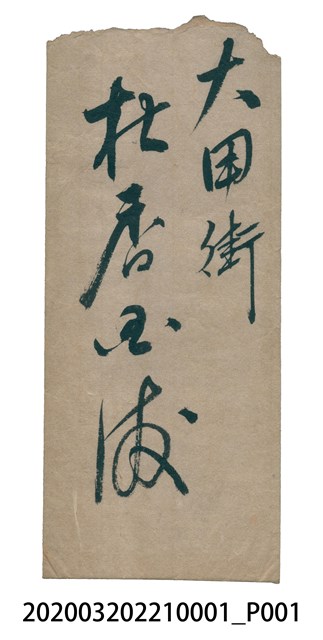 大甲街
杜香国
202003202210001_P001